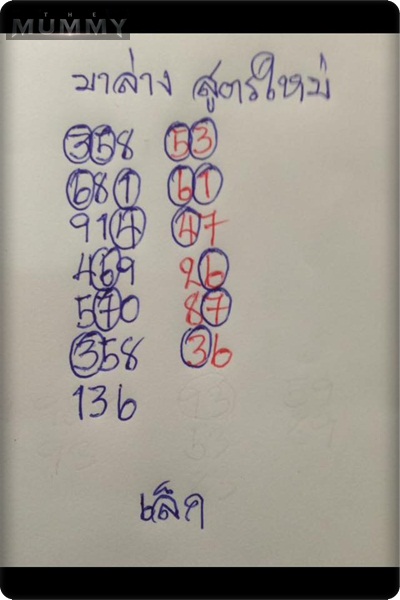 THE
MUMMY
มาล่าง สูตรใหม่
358 53
681 61
914 47
469 26
570 87
358 36
136